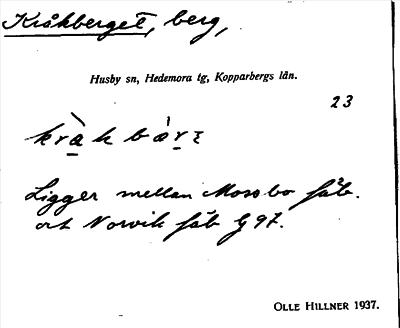 Kråkberget, berg,
Husby sn, Hedemora tg, Kopparbergs län.
23
kràk bárɛ
Ligger mellan Mossbo fäb.
och Norvik fäb G 97.
OLLE HILLNER 1937.